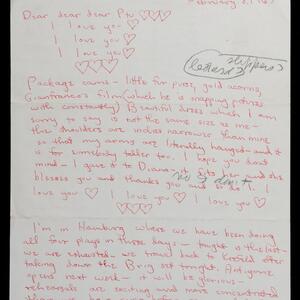 February 8, 1967
Dear dear dear Pru ♡♡♡
I love you ♡
I love you ♡
I love you ♡
♡♡♡♡
slippers?
leotards?
Package came - little fur purse, gold acorns,
Gianfranco's film (which he is snapping pictures
with constantly) Beautiful dress which I am
sorry to say is not the same size as me -
the shoulders are inches narrower than mine
so that my arms are literally hanged - and it
is for somebody taller too. I hope you don't
mind - I gave it to Diana - it fits her and she
blesses you and thanks you and so do I. I
no I don't
love you ♡ I love you ♡ I love you ♡
♡
I'm in Hamburg where we have been doing
all four plays in three days - tonight is the last -
we are exhausted - we travel back to Krefeld after
taking down the Brig set tonight. Antigone
opens next week - will be glorious -
rehearsals are exciting and more concentrated